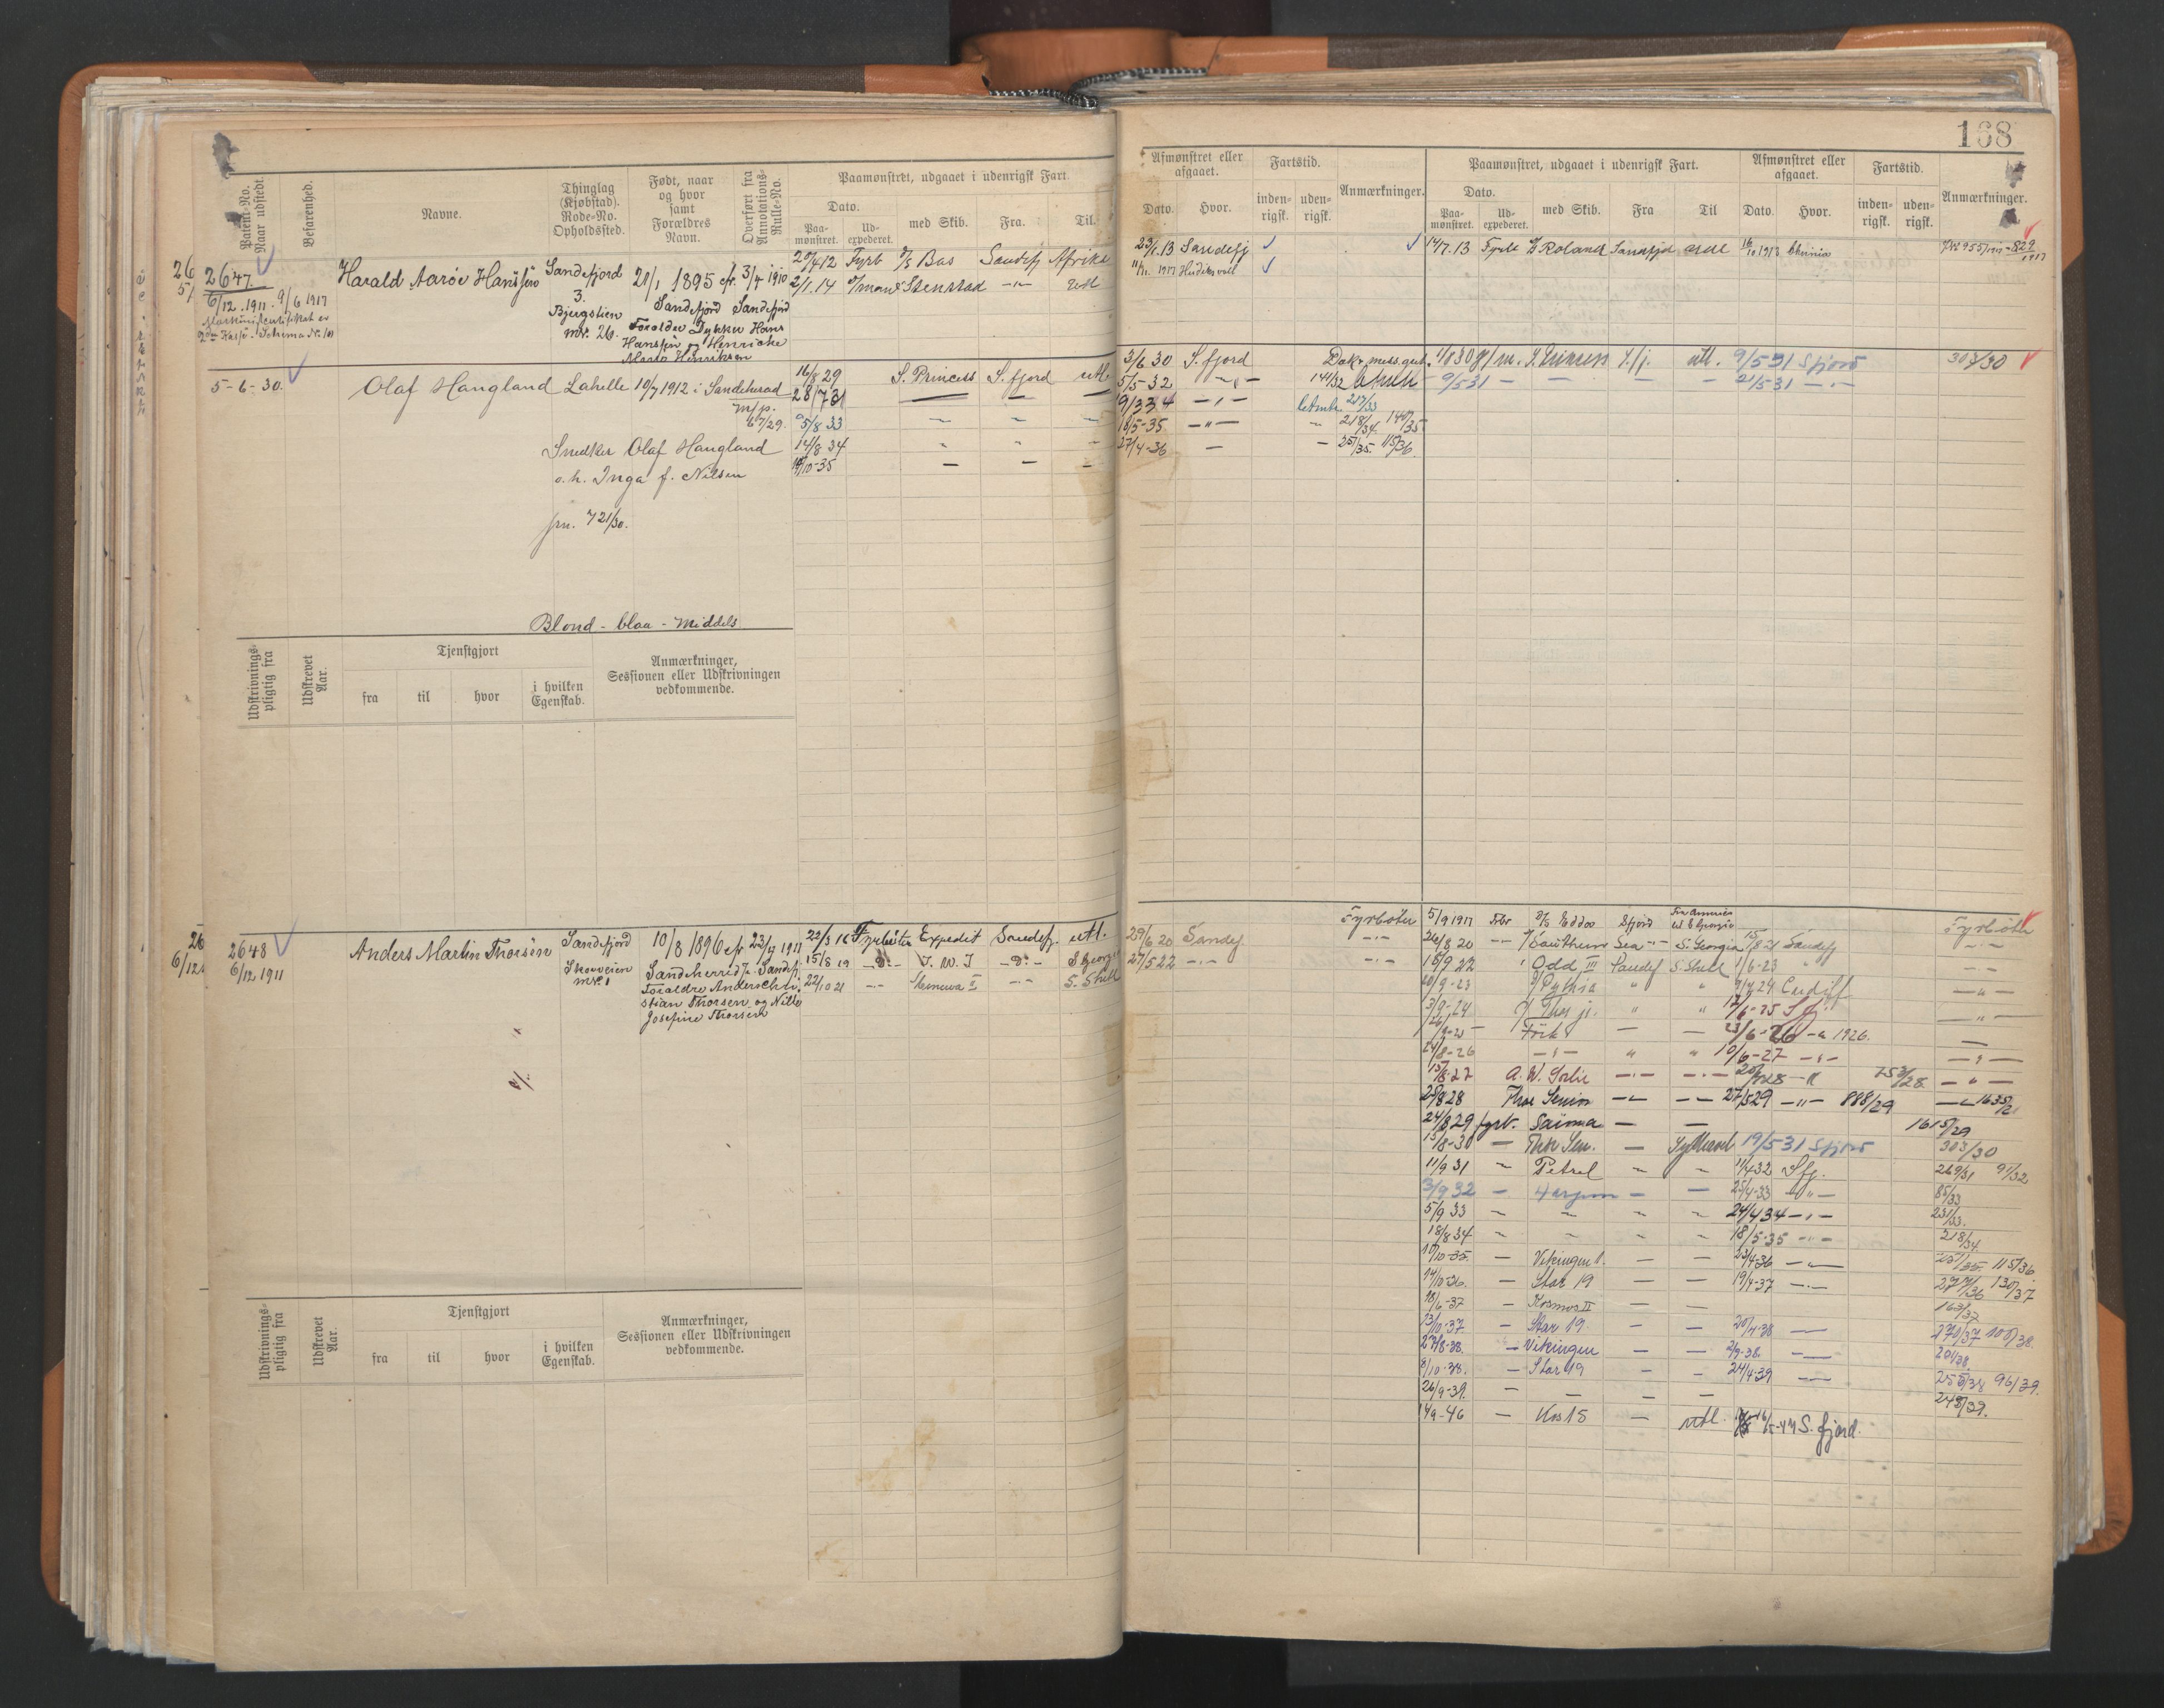 168
Patent-No. Naar udstedt.
Befarenhed.
Navne.
Thinglag (Kjøbstad). Rode-No. Opholdssted.
Født, naar og hvor samt Forældres Navn.
Overført fra Annotations-Rulle-No.
Paamønstret, udgaaet i udenrigsk Fart.
Dato.
Paa-mønstret.
Ud-expederet.
med Skib.
Fra.
Til.
Afmønstret eller afgaaet.
Dato.
Hvor.
Fartstid.
inden-rigsk.
uden-rigsk.
Anmærkninger.
Paamønstret, udgaaet i udenrigsk Fart.
Dato.
Paa-mønstret.
Ud-expederet.
med Skib.
Fra
Til
Afmønstret eller afgaaet.
Dato.
Hvor.
Fartstid.
inden-rigsk.
uden-rigsk.
Anmærkninger.
2647
6/12.1911. 9/6 1917
Harald Aarøe Hanssøn
Sandefjord
3.
Bjergstien
nr. 26.
21/1 1895 cfr. 3/4 1910
Sandefjord Sandefjord
Forældre Dykker Hans
Hanssøn og Henricke
Marie Henriksen
20/4 12 Fyrb Bas Sandefj Afrika
2/1.14 Stenstad
23/1.13 Sandefj
14/7.13 Fyrb Roland
16/10 1913
829/1917
5-6-30.
Olaf Haugland Lahelle 10/7 1912 i Sandeherad
m/p.
67/29.
Snedker Olaf Haugland
o.h. Inga f. Nilsen
jrn. 721/30.
Blond - blaa - Middels
16/8 29 S. Princess S. fjord utl.
28/7 31
5/8 33
14/8 34
19/10-35
3/6 30 S. fjord
5/5-32 -"-
19/3 34 -"-
18/5-35 -"-
27/4-36 —
utl. 9/5 31 Sfjord
9/5 31 — 21/5 31
303/30
Udskrivnings-pligtig fra
Udskrevet Aar.
Tjenstgjort
fra
til
hvor
i hvilken Egenskab.
Anmærkninger, Sessionen eller Udskrivningen vedkommende.
2648
6/12 1911
Anders Martin Thorsøn
Sandefjord
Skoveien
nr. 1
10/8 1896 cfr. 23/9 1911
Sandeherred p. Sandefj.
Forældre Anders Chri-
stian Thorsen og Nille
Josefine Thorsen
22/3 16 Fyrbøter Expedit Sandefj. utl.
15/8 19 -D.- T. W. I -D.- S Georgia
22/10 21 -"- Minerva II -"- S. Shetl
29/6 20 Sandefj
27/5 22 -"-
Fyrbøter
-"-
-"-
5/9 1917 Frbr Eddoa Sfjord
Fyrbøter
26/8 20 -- Southern Sea -"- S. Georgia 15/8-21 Sandefj
18/9 22 " Odd III Sandef S. Shetl 1/6-23
20/9-23 Pythia " " 24 Cardiff
3/9-24 Thor jr. " " 12/6-25 S fj.
Türk — — 23/6-26 -"- 1926.
24/8-26 -"- " " 10/6-27 -"-
15/8 27 A. W. Sørlie -"- -"- 753/28 -"-
25/8 28 Thor Senior -"- -"- 27/5 29 -"- 888/29
24/8 29 fyrb. Saima — — 1615/29
15/8-30 — Thor Sen. — Sydhavet 19/5 31 Sfjord 303/30
11/9 31 " Petrel " " 11/4 32 Sfj. 269/31 91/32
3/9 32 — Harpun — — 25/4-33 -"- 85/33
5/9 33 24/4 34 -"- 231/33.
18/8 34 18/5-35 -"- 218/34
17/10-35. — Vikingen — — 23/4-36 -"- 257/35. 115/36
14/10-36. — Star 19 — — 19/4-37 -"- 277/36 130/37
18/6-37 — Kosmos II — — 163/37
13/10-37. — Star 19 — — 20/4-38 -"- 270/37 100/38.
27/8-38. — Vikingen — — 2/9-38. -"- 201/38.
8/10-38. — Star 19 — — 24/4-39 -"- 255/38 96/39.
26/9-39. — — — — 248/39.
14/9-46 — Kos 15 — utl. S. fjord.
Udskrivnings-pligtig fra
Udskrevet Aar.
Tjenstgjort
fra
til
hvor
i hvilken Egenskab.
Anmærkninger, Sessionen eller Udskrivningen vedkommende.